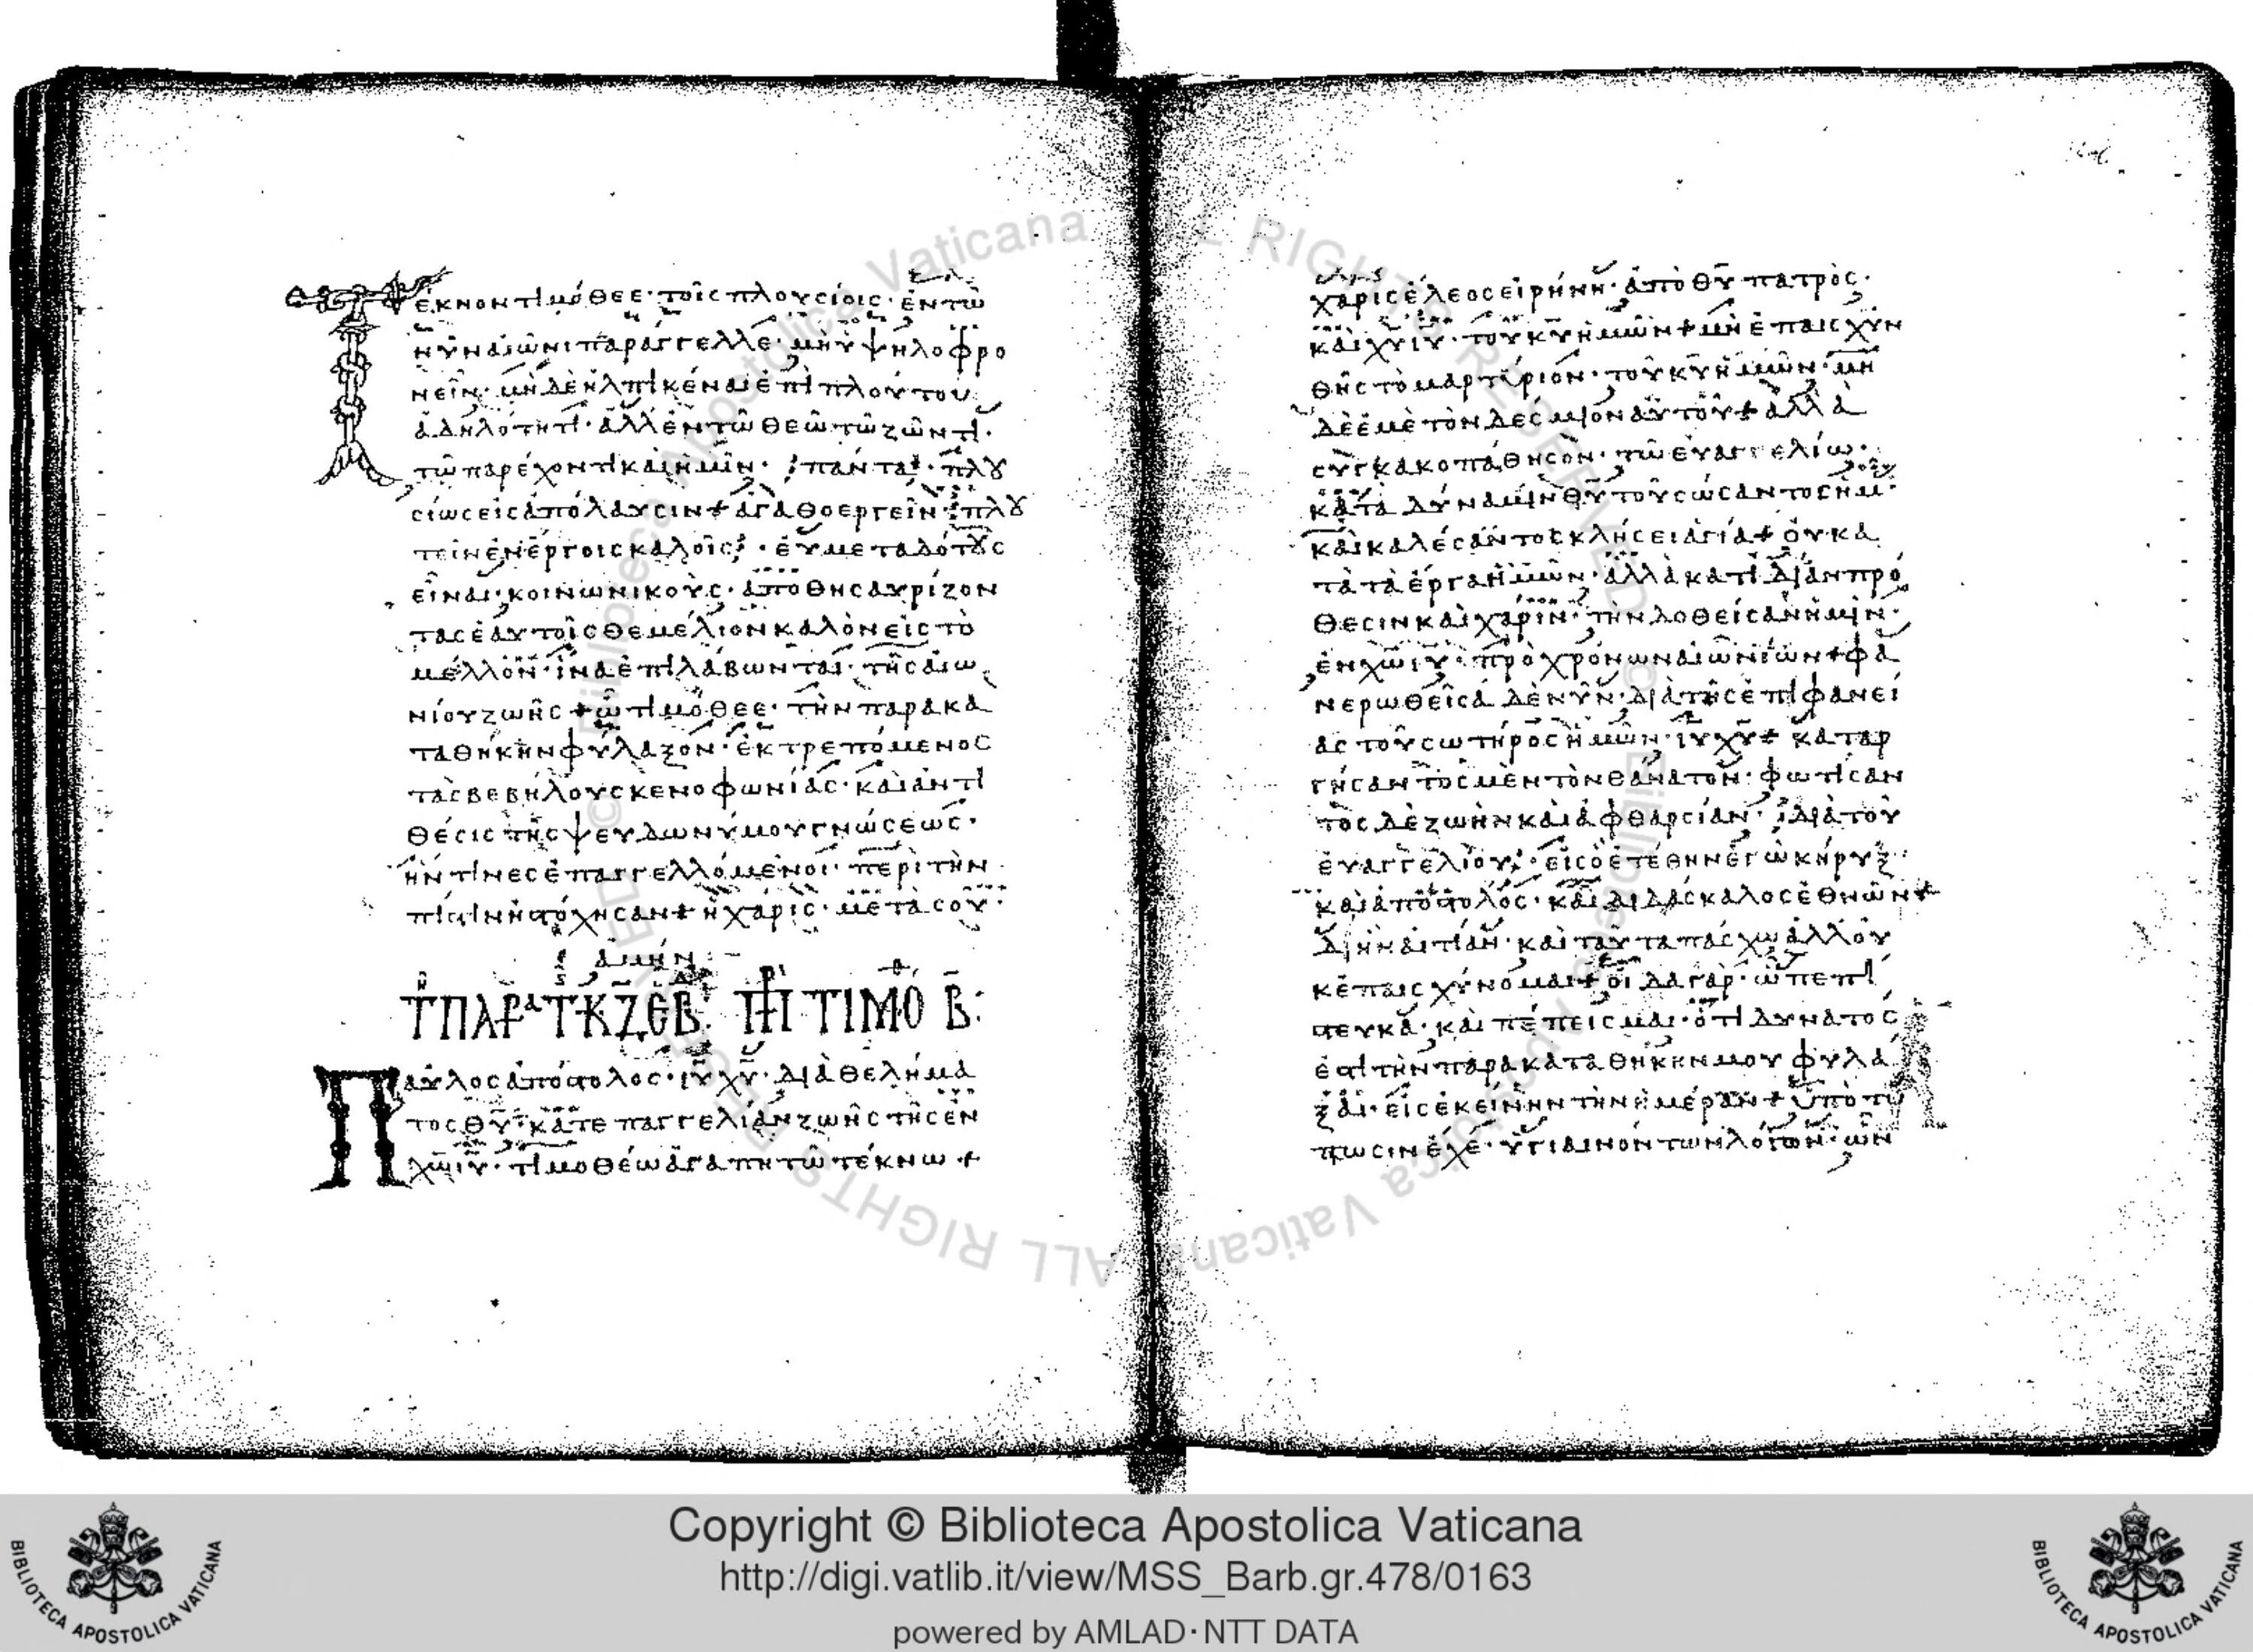 Τέκνον τιμόθεε· τοῖς πλουσίοις· ἐν τῶ
νῦν αἰῶνι παράγγελλε· μὴ ὑψηλοφρο
νεῖν· μὴ δὲ ἠλπικέναι ἐπὶ πλούτου
ἀδηλότητι· ἀλλ' ἐν τῶ θεῶ τῶ ζῶντι·
τῶ παρέχοντι καὶ ἡμῖν· πάντα· πλου
σίως εἰς ἀπόλαυσιν + ἀγαθοεργεῖν· πλου
τεῖν ἐν ἔργοις καλοῖς· εὐμεταδότους
εἶναι· κοινωνικούς· ἀποθησαυρίζον
τας ἑαυτοῖς θεμέλιον καλὸν εἰς τὸ
μέλλον· ἵνα ἐπιλάβωνται· τῆς αἰω
νίου ζωῆς + ὦ τιμόθεε· τὴν παρακα
ταθήκην φύλαξον· ἐκτρεπόμενος
τὰς βεβήλους κενοφωνίας· καὶ ἀντι
θέσις τῆς ψευδωνύμου γνώσεως·
ἥν τινες ἐπαγγελλόμενοι· περὶ τὴν
πίστιν ἠστόχησαν + ἡ χάρις· μετὰ σοῦ·
ἀμήν
Παῦλος ἀπόστολος· ιυ χυ· διὰ θελήμα
τος θυ· κατ' ἐπαγγελίαν ζωῆς τῆς ἐν
χω ιυ· τιμοθέω ἀγαπητῶ τέκνω +
χάρις ἔλεος εἰρήνη· ἀπὸ θυ πατρός·
καὶ χυ ιυ· τοῦ κυ ἡμῶν + μὴ ἐπαισχυν
θῆς τὸ μαρτύριον· τοῦ κυ ἡμῶν· μη
δὲ ἐμὲ τὸν δέσμιον αὐτοῦ + ἀλλὰ
συγκακοπάθησον· τῶ εὐαγγελίω·
κατὰ δύναμιν θυ τοῦ σώσαντος ἡμ
καὶ καλέσαντος κλήσει ἁγία + οὐ κα
τὰ τὰ ἔργα ἡμῶν· ἀλλὰ κατ' ἰδίαν πρό
θεσιν καὶ χάριν· τὴν δοθεῖσαν ἡμῖν·
ἐν χω ιυ· πρὸ χρόνων αἰωνίων + φα
νερωθεῖσα δὲ νῦν· διὰ τῆς ἐπιφανεί
ας τοῦ σωτῆρος ἡμῶν· ιυ χυ + καταρ
γήσαντος μὲν τὸν θάνατον· φωτίσαν
τος δὲ ζωὴν καὶ ἀφθαρσίαν· διὰ τοῦ
εὐαγγελίου· εἰς ὃ ἐτέθην ἐγὼ κήρυξ·
καὶ ἀπόστολος· καὶ διδάσκαλος ἐθνῶν +
δι' ἣν αἰτίαν· καὶ ταῦτα πάσχω ἀλλ' οὐ
κ ἐπαισχύνομαι + οἶδα γὰρ· ὧ πεπί
στευκα· καὶ πέπεισμαι· ὅτι δυνατός
ἐστι τὴν παρακαταθήκην μου φυλά
ξαι· εἰς ἐκείνην τὴν ἡμέραν + ὑποτύ
πωσιν ἔχε· ὑγιαινόντων λόγων· ὧν
Copyright © Biblioteca Apostolica Vaticana
http://digi.vatlib.it/view/MSS_Barb.gr.478/0163
powered by AMLAD·NTT DATA
BIBLIOTECA APOSTOLICA VATICANA
BIBLIOTECA APOSTOLICA VATICANA